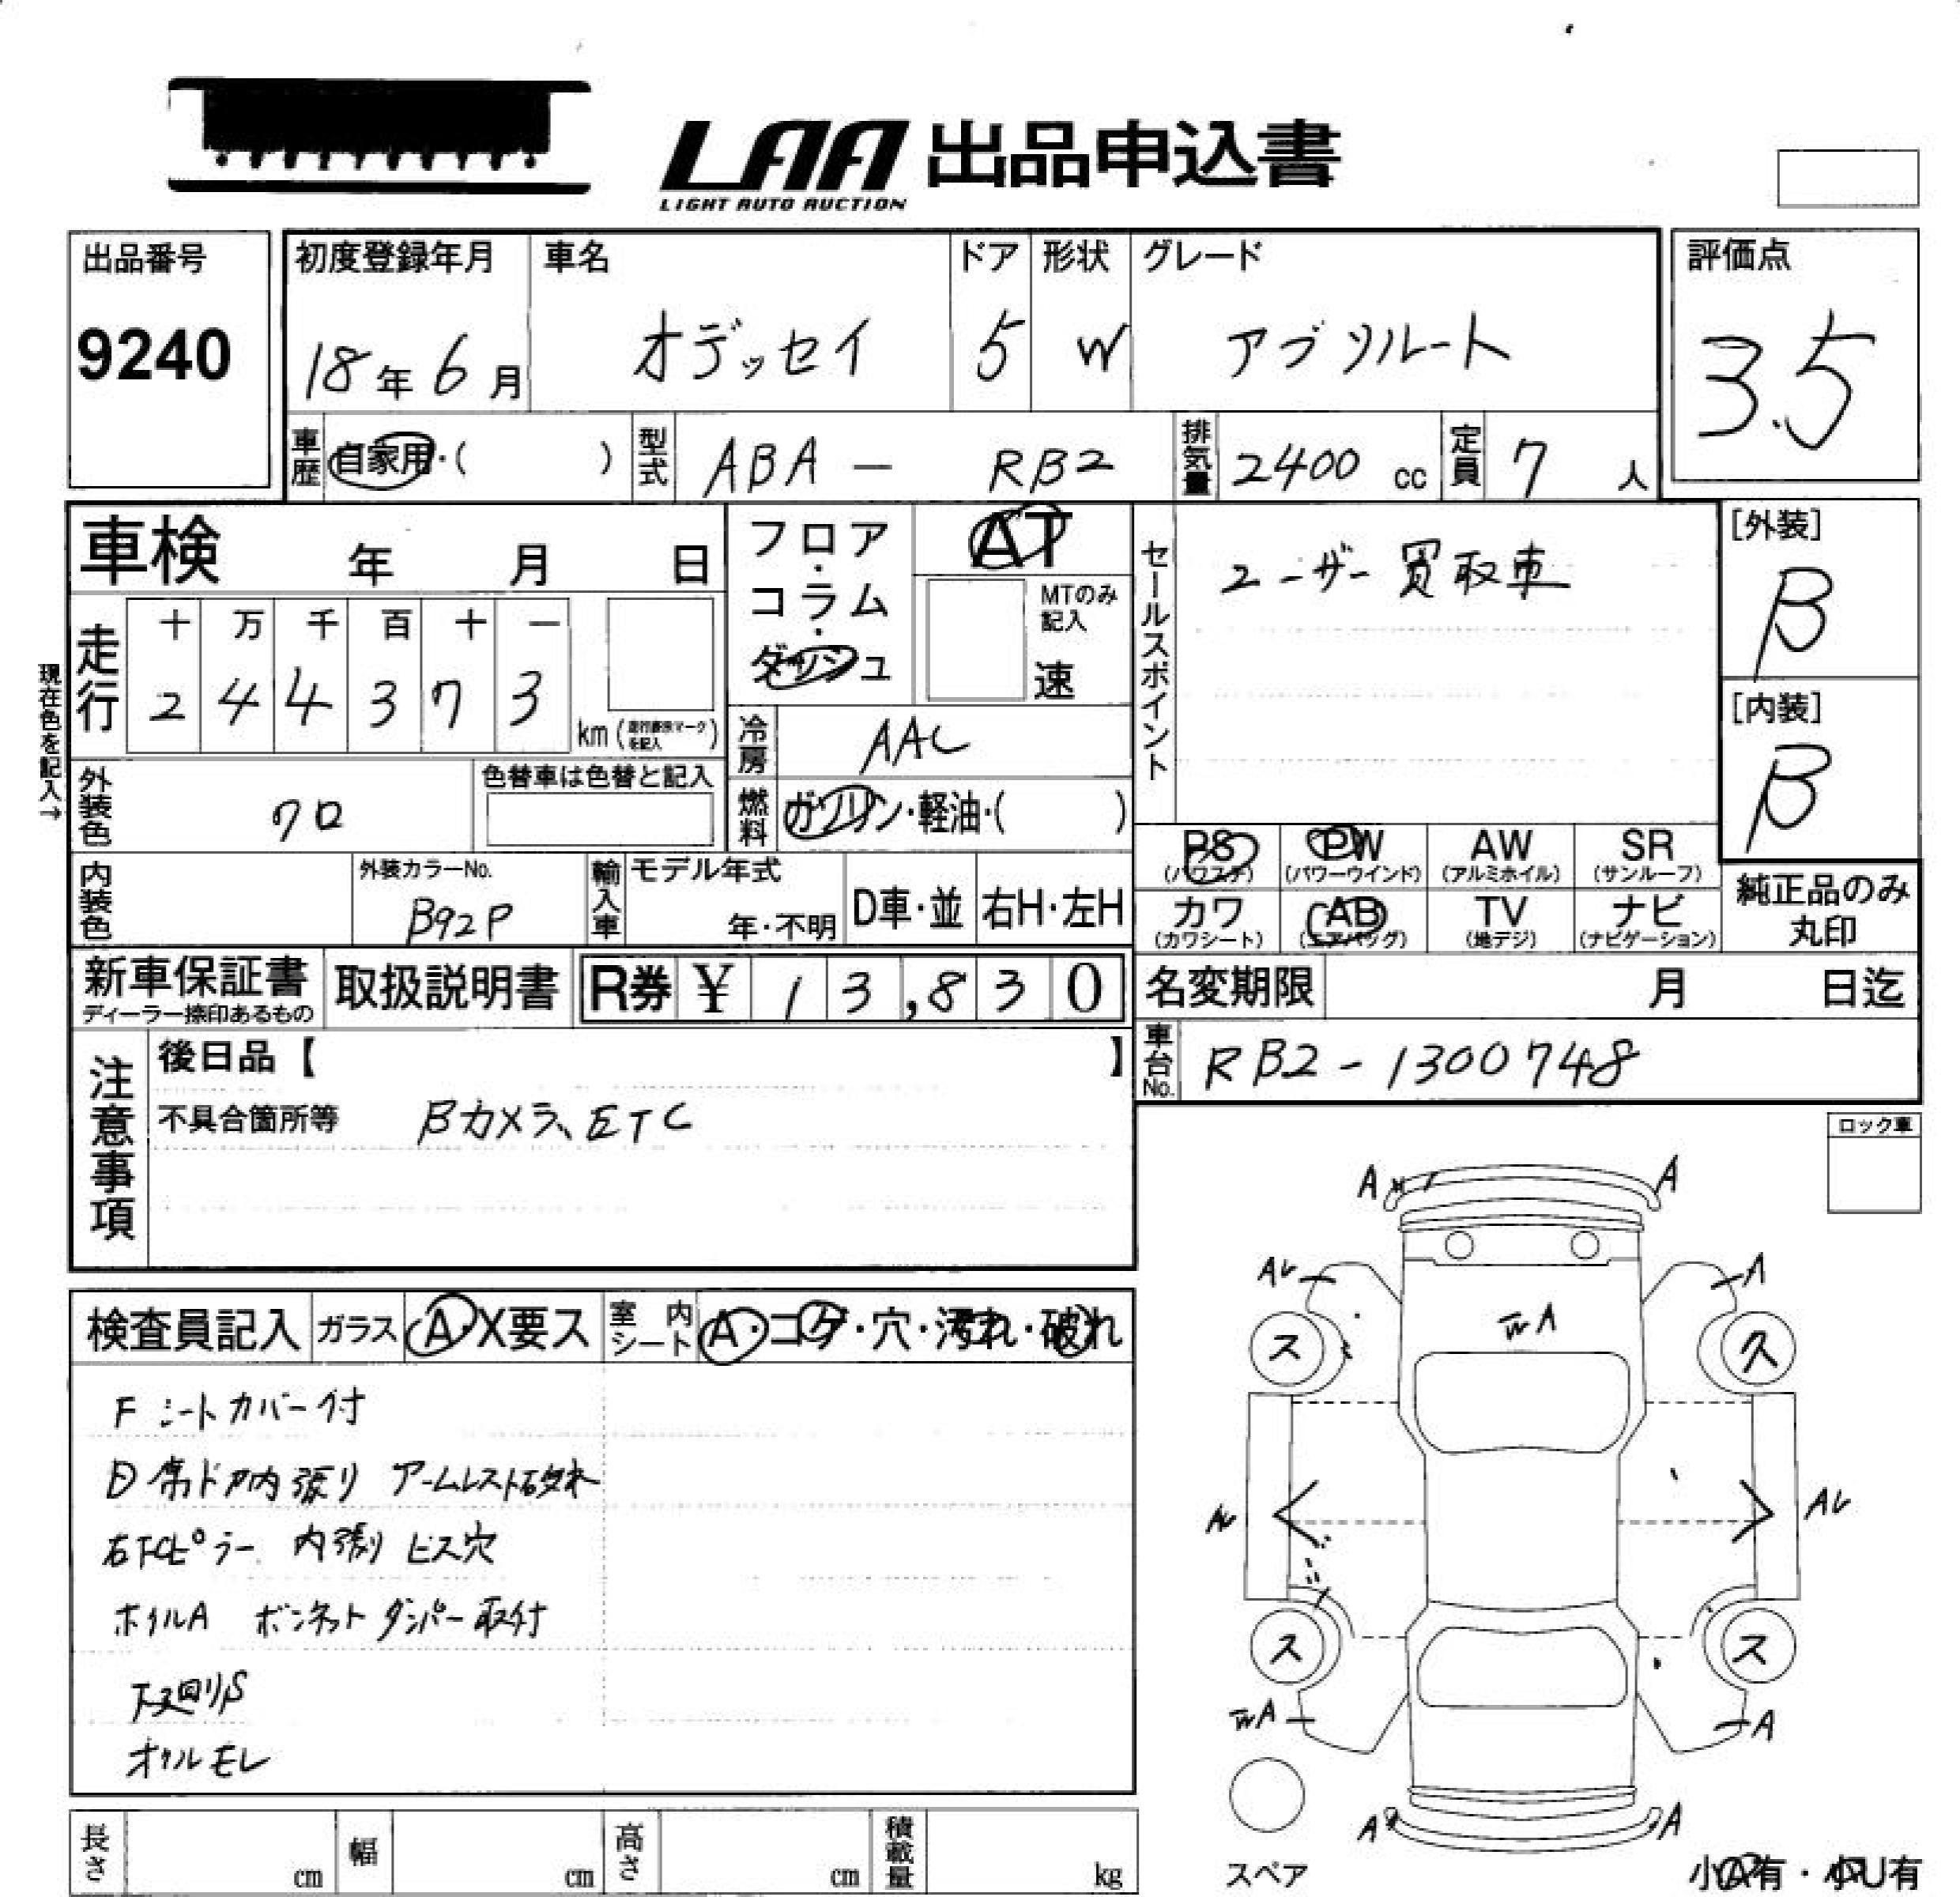 LAA 出品申込書
LIGHT AUTO AUCTION
出品番号
9240
初度登録年月
18年6月
車名
オデッセイ
ドア
5
形状
W
グレード
アブソルート
評価点
3.5
車歴
自家用・( )
型式
ABA - RB2
排気量
2400 cc
定員
7 人
車検 年 月 日
フロア・コラム・ダッシュ
AT
MTのみ記入
速
セールスポイント
ユーザー買取車
[外装]
B
[内装]
B
現在色を記入↑
走行
十 万 千 百 十 一
2 4 4 3 7 3
km
冷房
AAC
外装色
クロ
色替車は色替と記入
燃料
ガソリン・軽油・( )
PS (パワステ)
PW (パワーウインド)
AW (アルミホイル)
SR (サンルーフ)
カワ (カワシート)
AB (エアバッグ)
TV (地デジ)
ナビ (ナビゲーション)
純正品のみ
丸印
内装色
外装カラーNo.
B92P
輸入車
モデル年式
年・不明
D車・並
右H・左H
新車保証書
ディーラー捺印あるもの
取扱説明書
R券 ¥ 13,830
名変期限 月 日迄
車台No.
RB2-1300748
注意事項
後日品【 】
不具合箇所等 Bカメラ、ETC
ロック車
検査員記入
ガラス A・X要ス
室内シート A・コゲ・穴・汚れ・破れ
Fシートカバー付
D席ドア内張り アームレスト破れ
ピラー 内張り ビス穴
ホイルA ボンネットダンパー取付
下廻りS
オイルモレ
A A
A
A
ス ス
ス ス
A
A A
スペア
小A有・小U有
長さ cm
幅 cm
高さ cm
積載量 kg